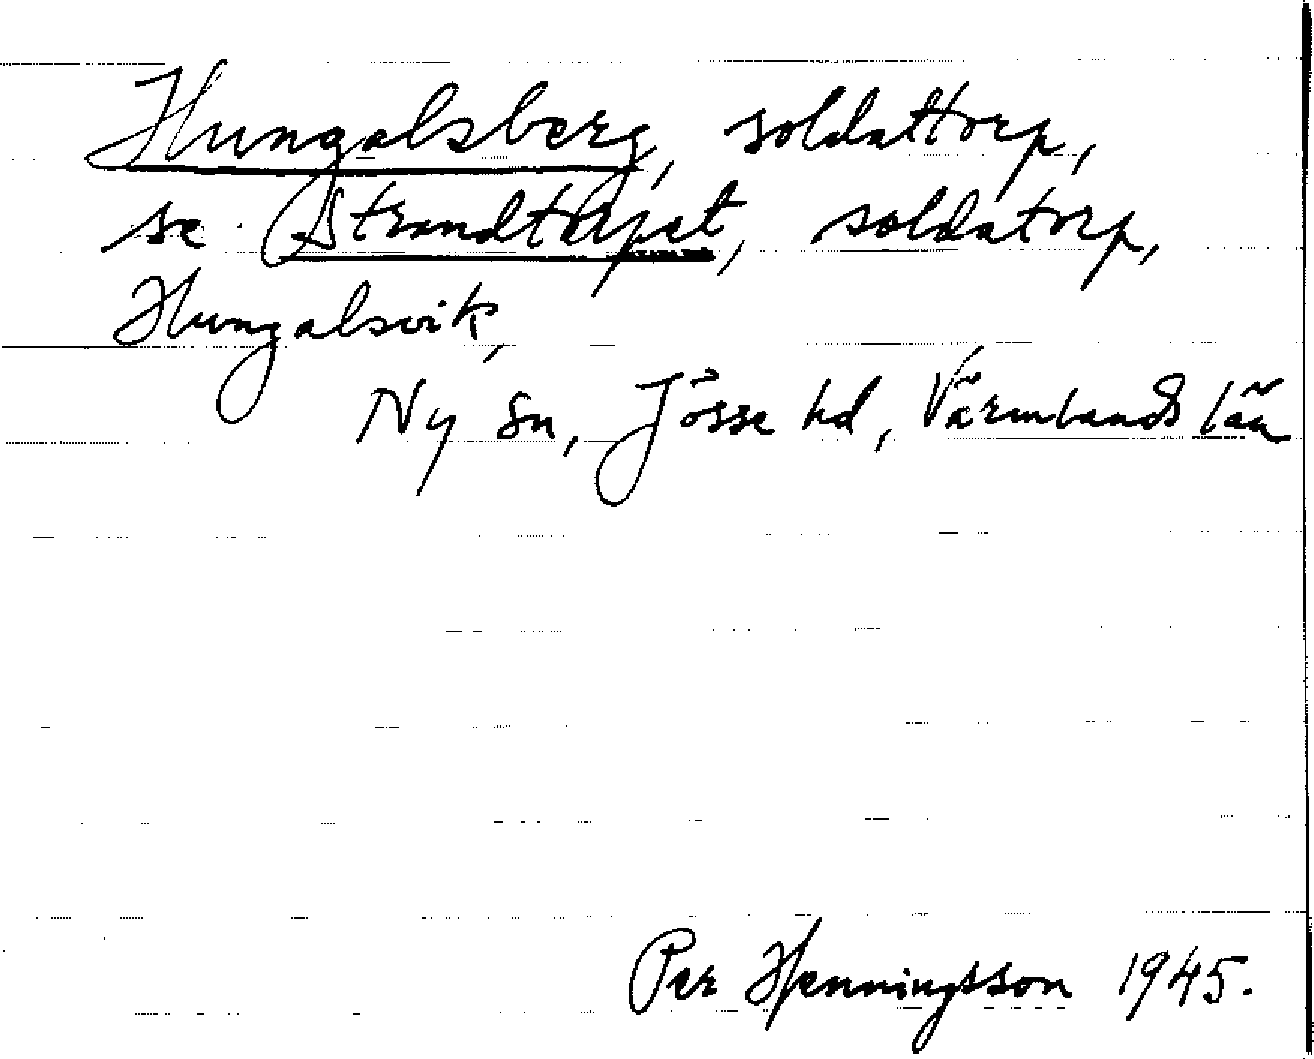 Hungalsberg, soldattorp,
se Strandtorpet, soldatorp,
Hungalsvik,
Ny sn, Jösse hd, Värmlands län
Per Henningsson 1945.